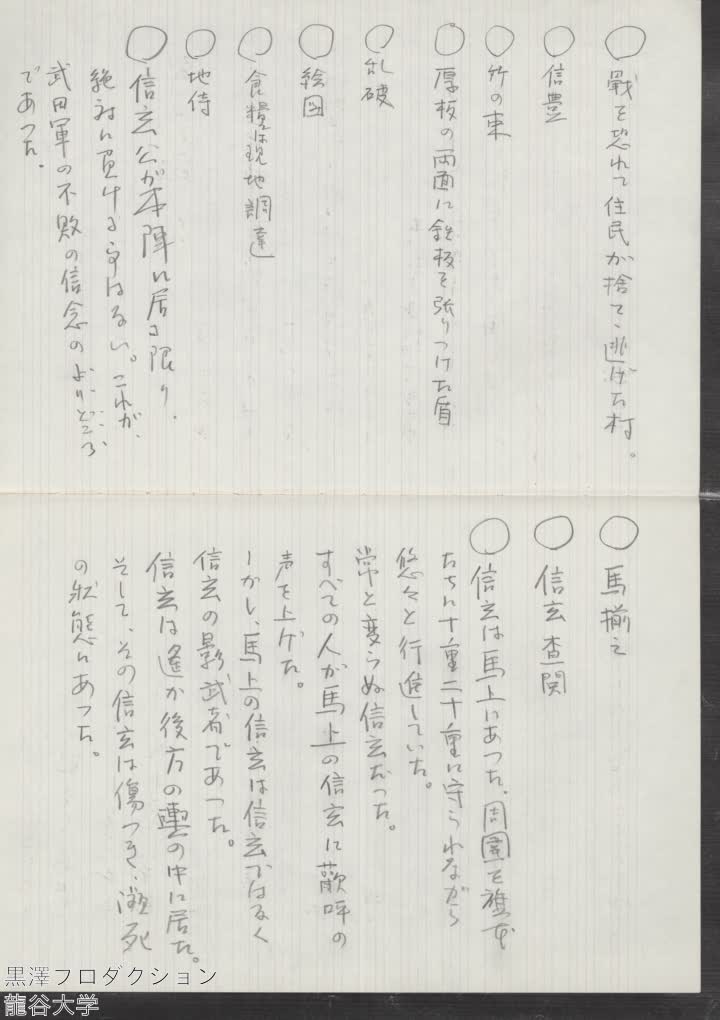 ○ 戰を恐れて住民が捨て、逃げた村。
○ 信豊
○ 竹の束
○ 厚板の両面に鉄板を張りつけた盾
○ 乱破
○ 絵図
○ 食糧は現地調達
○ 地侍
○ 信玄公が本陣に居る限り、
絶対に負ける事はない。これが、
武田軍の不敗の信念のよりどころ
であった。
○ 馬揃え
○ 信玄査閲
○ 信玄は馬上にあった。周囲を旗本
たちに十重二十重に守られながら
悠々と行進していた。
常と変らぬ信玄だった。
すべての人が馬上の信玄に歓呼の
声を上げた。
しかし、馬上の信玄は信玄ではなく
信玄の影武者であった。
信玄は遙か後方の輿の中に居た。
そして、その信玄は傷つき、瀕死
の状態にあった。
黒澤プロダクション
龍谷大学